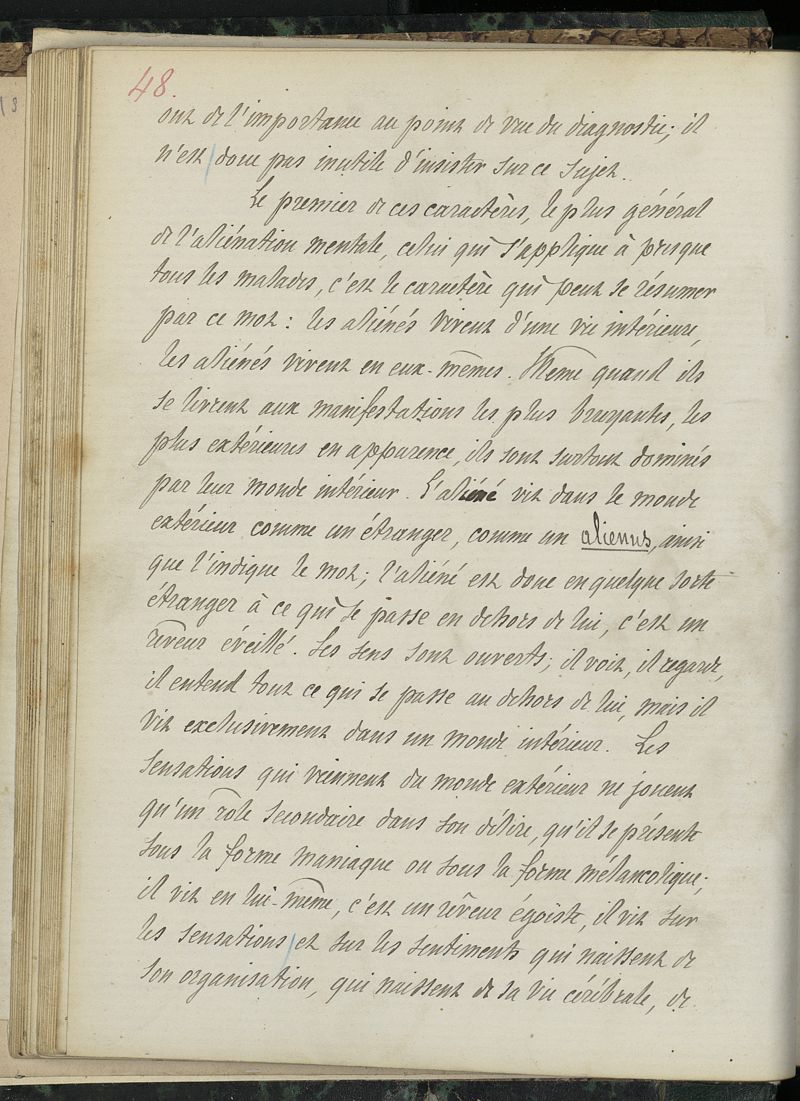 48.
ont de l'importance au point de vue du diagnostic; il
n'est donc pas inutile d'insister sur ce sujet.
Le premier de ces caractères, le plus général
de l'aliénation mentale, celui qui s'applique à presque
tous les malades, c'est le caractère qui peut se résumer
par ce mot : les aliénés vivent d'une vie intérieure,
les aliénés vivent en eux-mêmes. Même quand ils
se livrent aux manifestations les plus bruyantes, les
plus extérieures en apparence, ils sont surtout dominés
par leur monde intérieur. L'aliéné vit dans le monde
extérieur comme un étranger, comme un alienus, ainsi
que l'indique le mot; l'aliéné est donc en quelque sorte
étranger à ce qui se passe en dehors de lui, c'est un
rêveur éveillé. Ses sens sont ouverts; il voit, il regarde,
il entend tout ce qui se passe au dehors de lui, mais il
vit exclusivement dans un monde intérieur. Les
sensations qui viennent du monde extérieur ne jouent
qu'un rôle secondaire dans son délire, qu'il se présente
sous la forme maniaque ou sous la forme mélancolique;
il vit en lui-même, c'est un rêveur égoiste, il vit sur
les sensations et sur les sentiments qui naissent de
son organisation, qui naissent de sa vie cérébrale, de